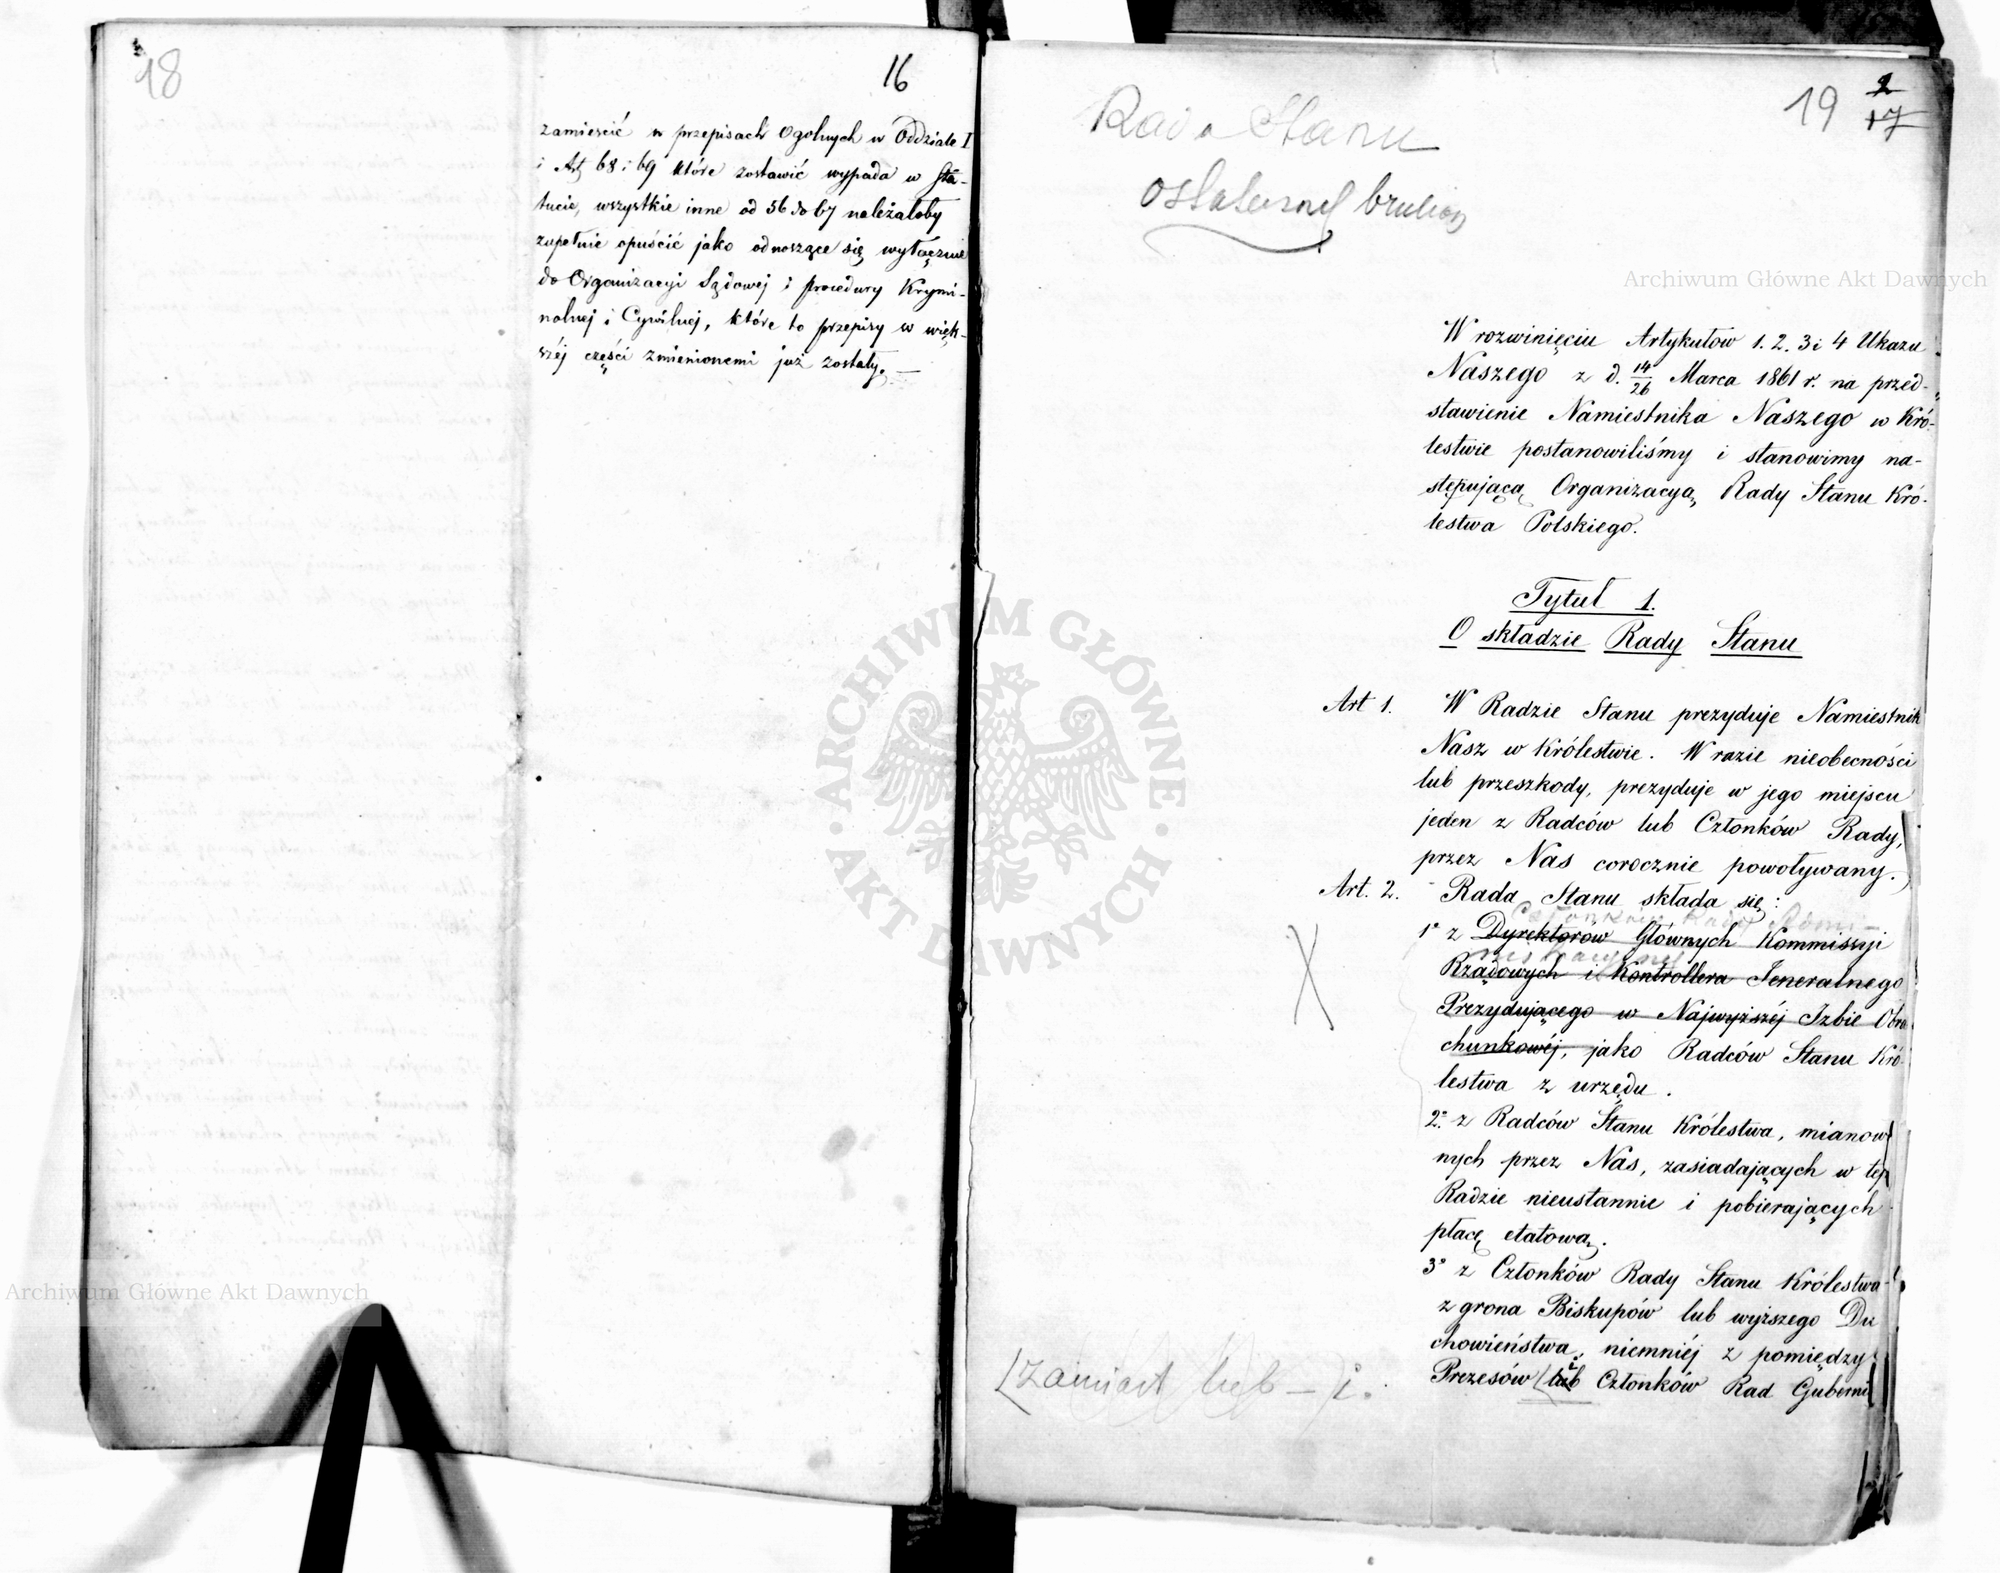 18
16
zamieścić w przepisach Ogólnych w Oddziale I
i Art 68 i 69 które zostawić wypada w Sta-
tucie, wszystkie inne od 56 do 67 należałoby
zupełnie opuścić jako odnoszące się wyłącznie
do Organizacyi Sądowej i procedury Krymi-
nalnej i Cywilnej, które to przepisy w więk-
széj części zmienionemi już zostały. —
19
2
17
Rada Stanu
ostateczny brulion
W rozwinięciu Artykułów 1. 2. 3 i 4 Ukazu
Naszego z d. 14/26 Marca 1861 r. na przed-
stawienie Namiestnika Naszego w Kró-
lestwie postanowiliśmy i stanowimy na-
stępującą Organizacyą Rady Stanu Kró-
lestwa Polskiego.
Tytuł 1.
O składzie Rady Stanu
Art 1. W Radzie Stanu prezyduje Namiestnik
Nasz w Królestwie. W razie nieobecności
lub przeszkody, prezyduje w jego miejscu
jeden z Radców lub Członków Rady,
przez Nas corocznie powoływany.
Art. 2. Rada Stanu składa się:
Członków Rady Admi-
1° z Dyrektorów Głównych Kommissyi
nistracyjnej
Rządowych i Kontrollera Jeneralnego
Prezydującego w Najwyższéj Izbie Obra
chunkowéj, jako Radców Stanu Kró-
lestwa z urzędu.
2° z Radców Stanu Królestwa, mianow
nych przez Nas, zasiadających w tej
Radzie nieustannie i pobierających
płacę etatową.
3° z Członków Rady Stanu Królestwa
z grona Biskupów lub wyższego Du
chowieństwa, niemniéj z pomiędzy
i
Prezesów (lub Członków Rad Guberni
(zamiast lub — i.
Archiwum Główne Akt Dawnych
Archiwum Główne Akt Dawnych
ARCHIWUM GŁÓWNE
AKT DAWNYCH